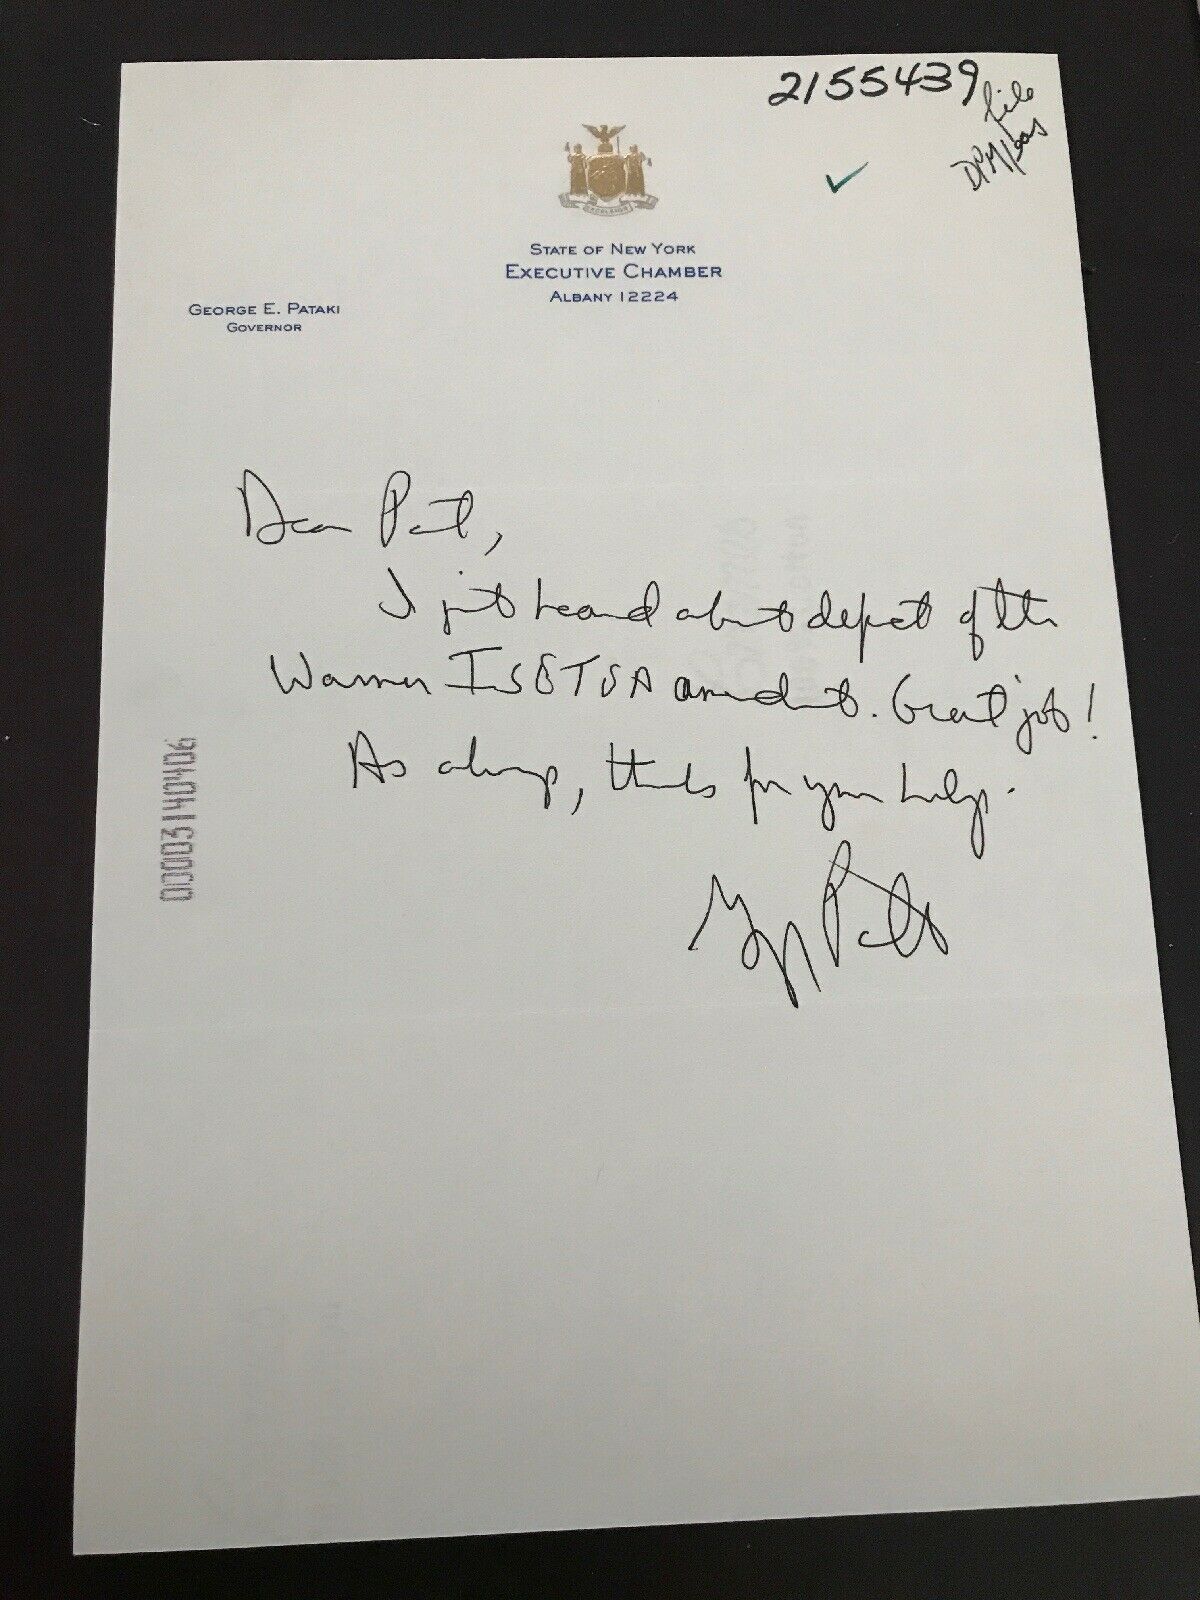 2155439
file
EXCELSIOR
STATE OF NEW YORK
EXECUTIVE CHAMBER
ALBANY 12224
GEORGE E. PATAKI
GOVERNOR
Dear Pat,
I just heard about defeat of the
Warner ISTEA amendment. Great job!
As always, thanks for your help.
George Pataki
00003140406